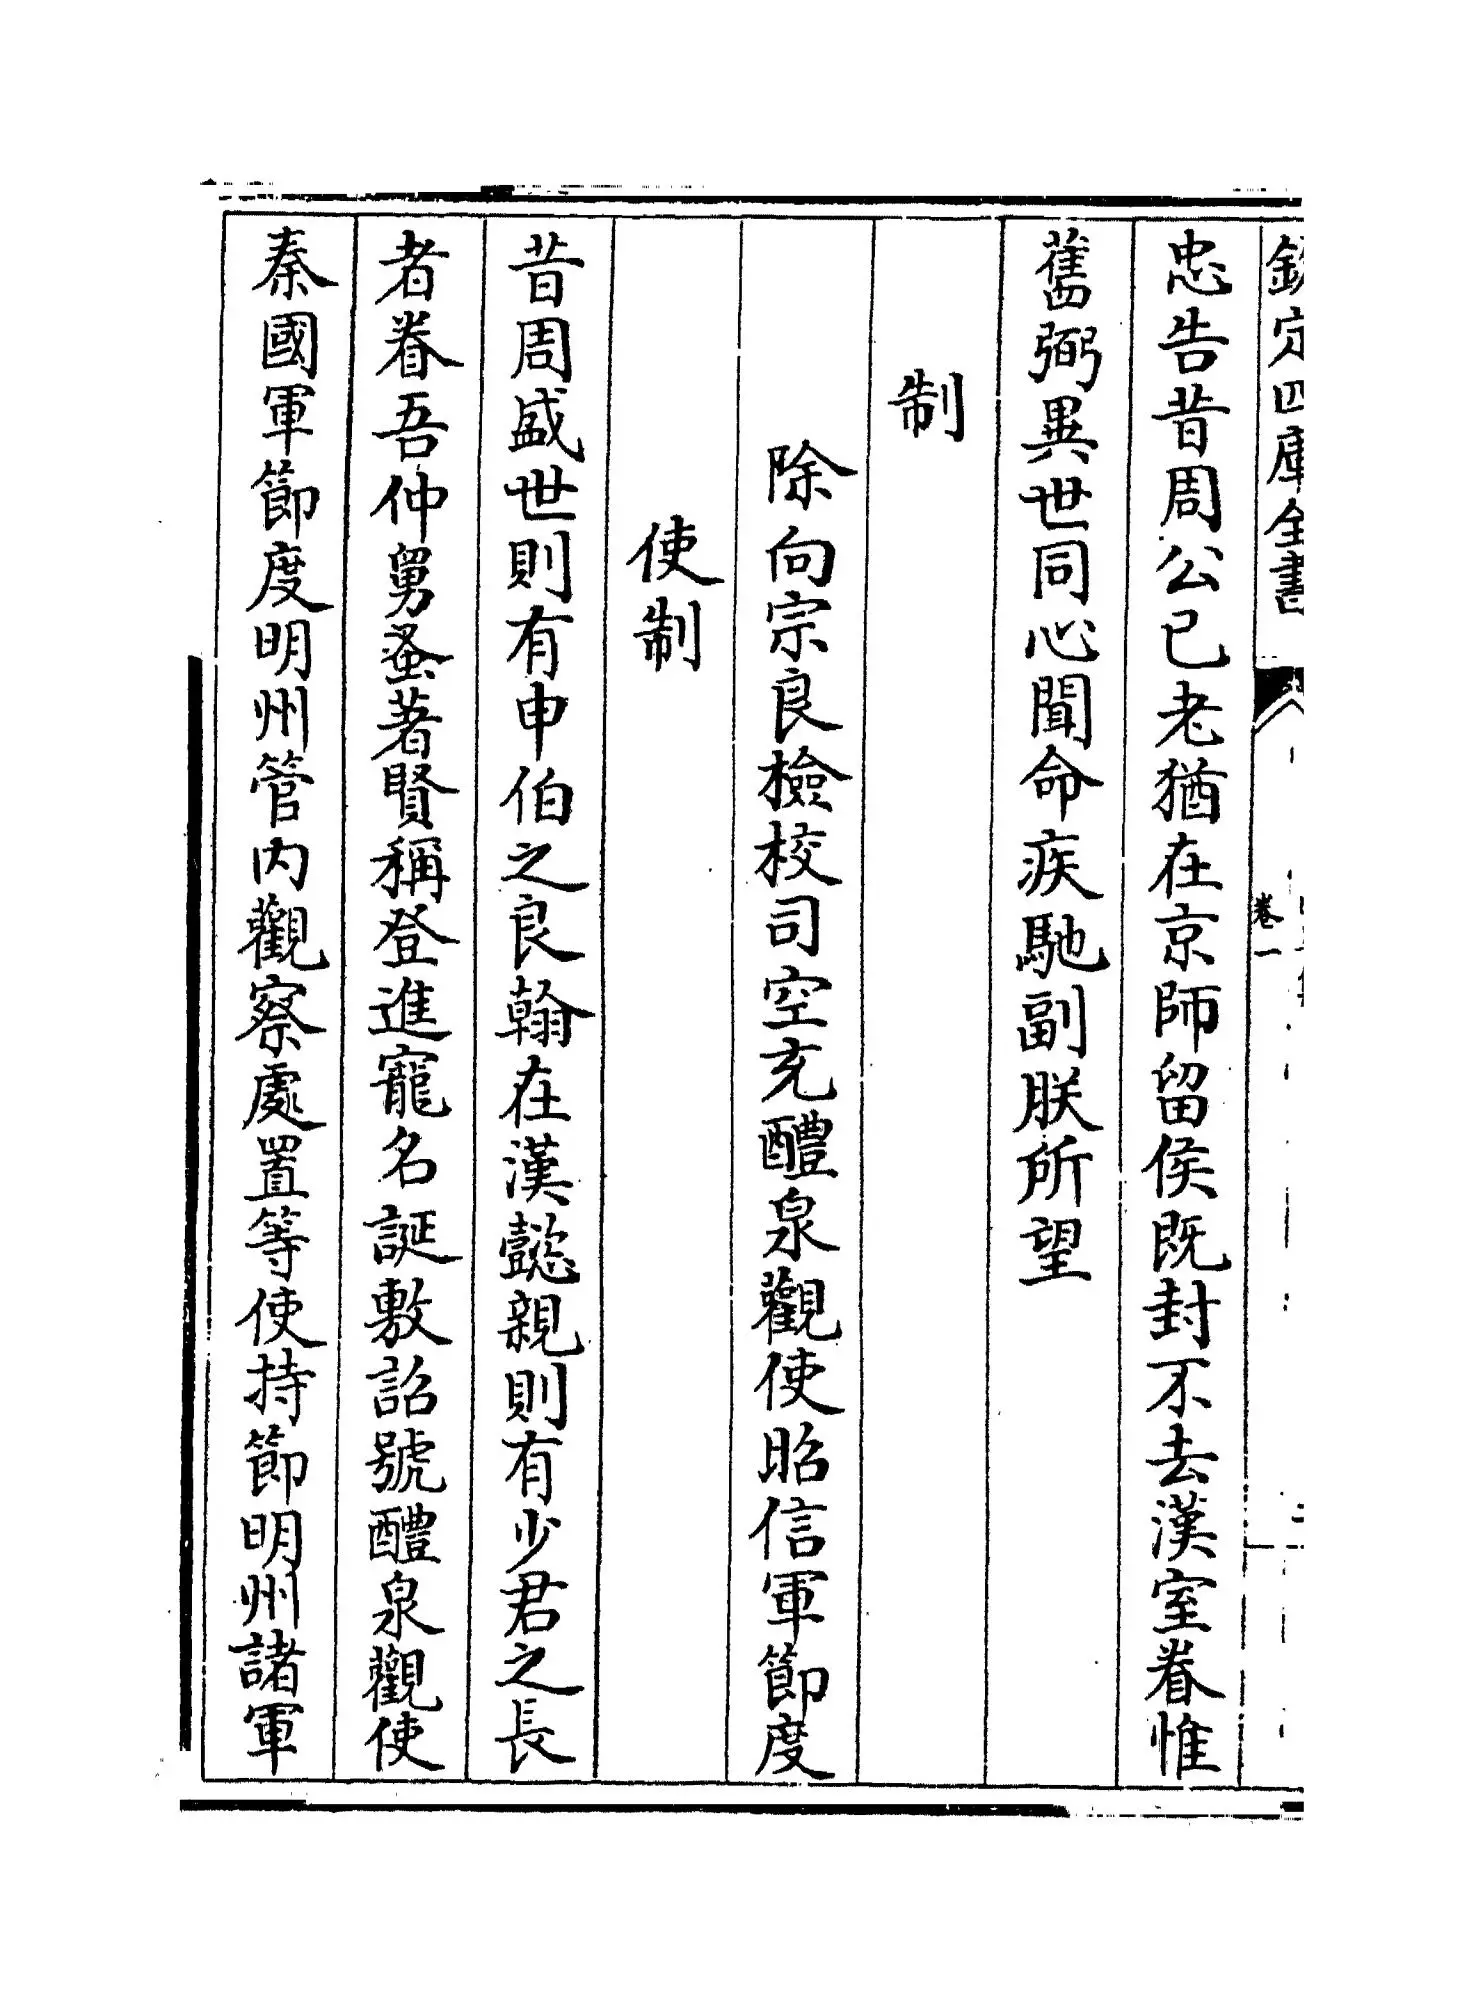 欽定四庫全書
卷一
忠告昔周公已老猶在京師留侯既封不去漢室眷惟
舊弼異世同心聞命疾馳副朕所望
制
除向宗良檢校司空充醴泉觀使昭信軍節度
使制
昔周盛世則有申伯之良翰在漢懿親則有少君之長
者眷吾仲舅蚤著賢稱登進寵名誕敷詔號醴泉觀使
奉國軍節度明州管内觀察處置等使持節明州諸軍